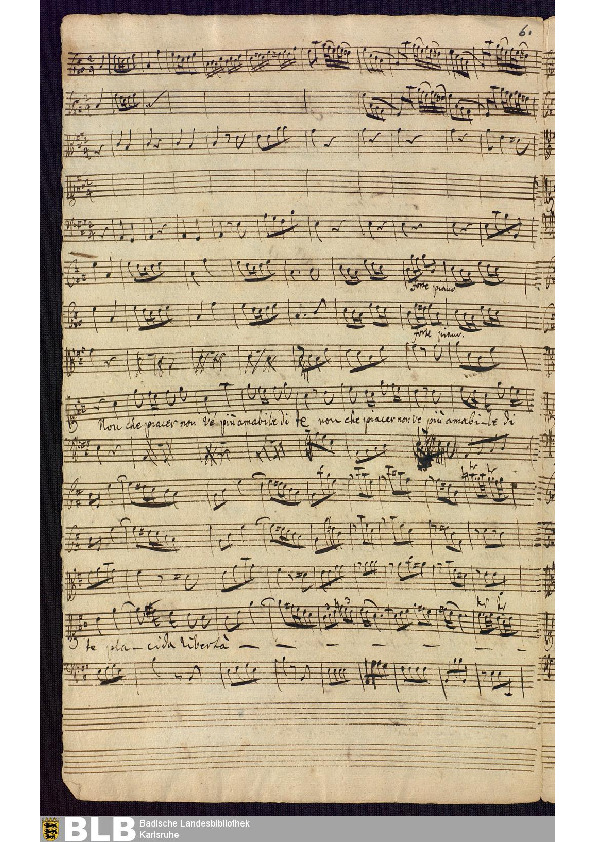 60
forte piano
forte piano.
Non che piacer non v'è più amabile di te non che piacer non v'è più amabi-le di
te pla-cida libertà
BLB
Badische Landesbibliothek
Karlsruhe